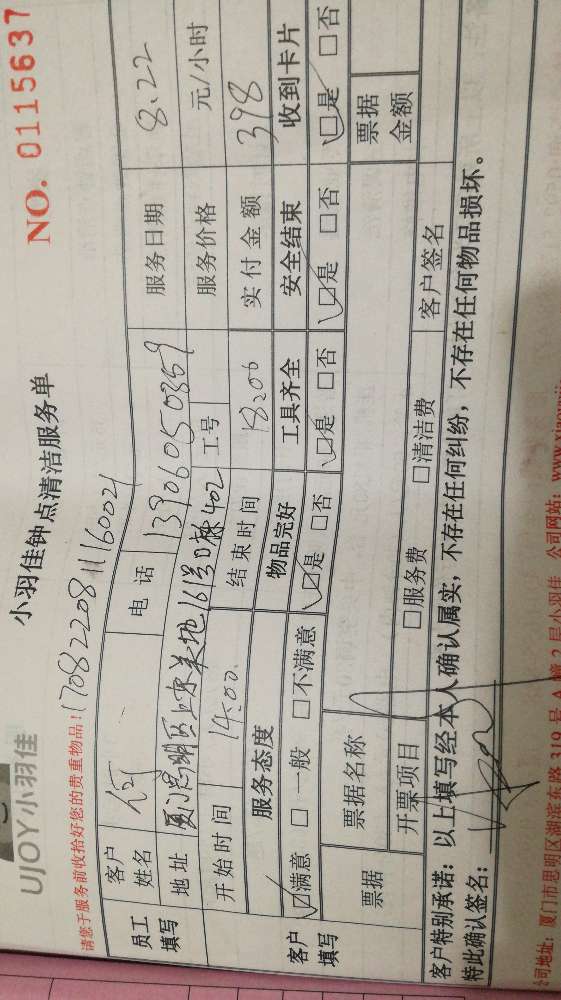 UJOY小羽佳
小羽佳钟点清洁服务单
NO. 0115637
请您于服务前收拾好您的贵重物品!
17082208111160021
员工填写 客户姓名 何 电话 13906050359 服务日期 8.22
地址 16号 402 工号 服务价格 元/小时
开始时间 14:00 结束时间 18:00 实付金额 398
客户填写 服务态度 物品完好 工具齐全 安全结束 收到卡片
☑满意 □一般 □不满意 ☑是 □否 ☑是 □否 ☑是 □否 ☑是 □否
票据 票据名称 票据金额
开票项目 □服务费 □清洁费 客户签名
客户特别承诺：以上填写经本人确认属实，不存在任何纠纷，不存在任何物品损坏。
特此确认签名：
公司地址：厦门市思明区湖滨东路319号A幢2层小羽佳 公司网站：